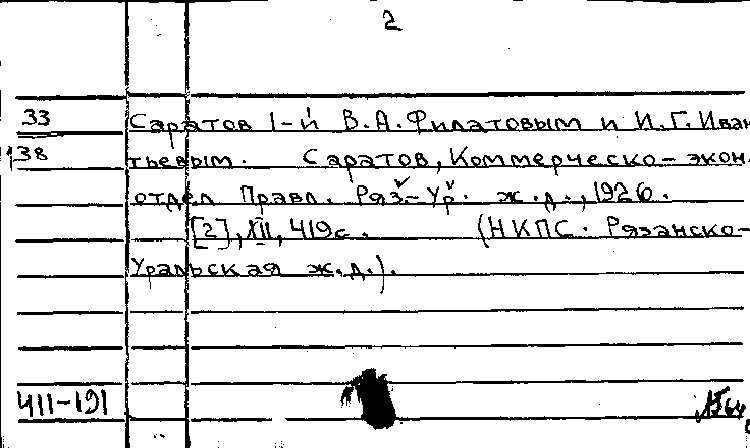 2
33
Саратов I-й В.А. Филатовым и И.Г. Иван
138
тьевым. Саратов, Коммерческо-экон.
отдел Правл. Ряз.-Ур. ж.д., 1926.
[2], XII, 419с. (НКПС. Рязанско-
Уральская ж.д.).
411-191